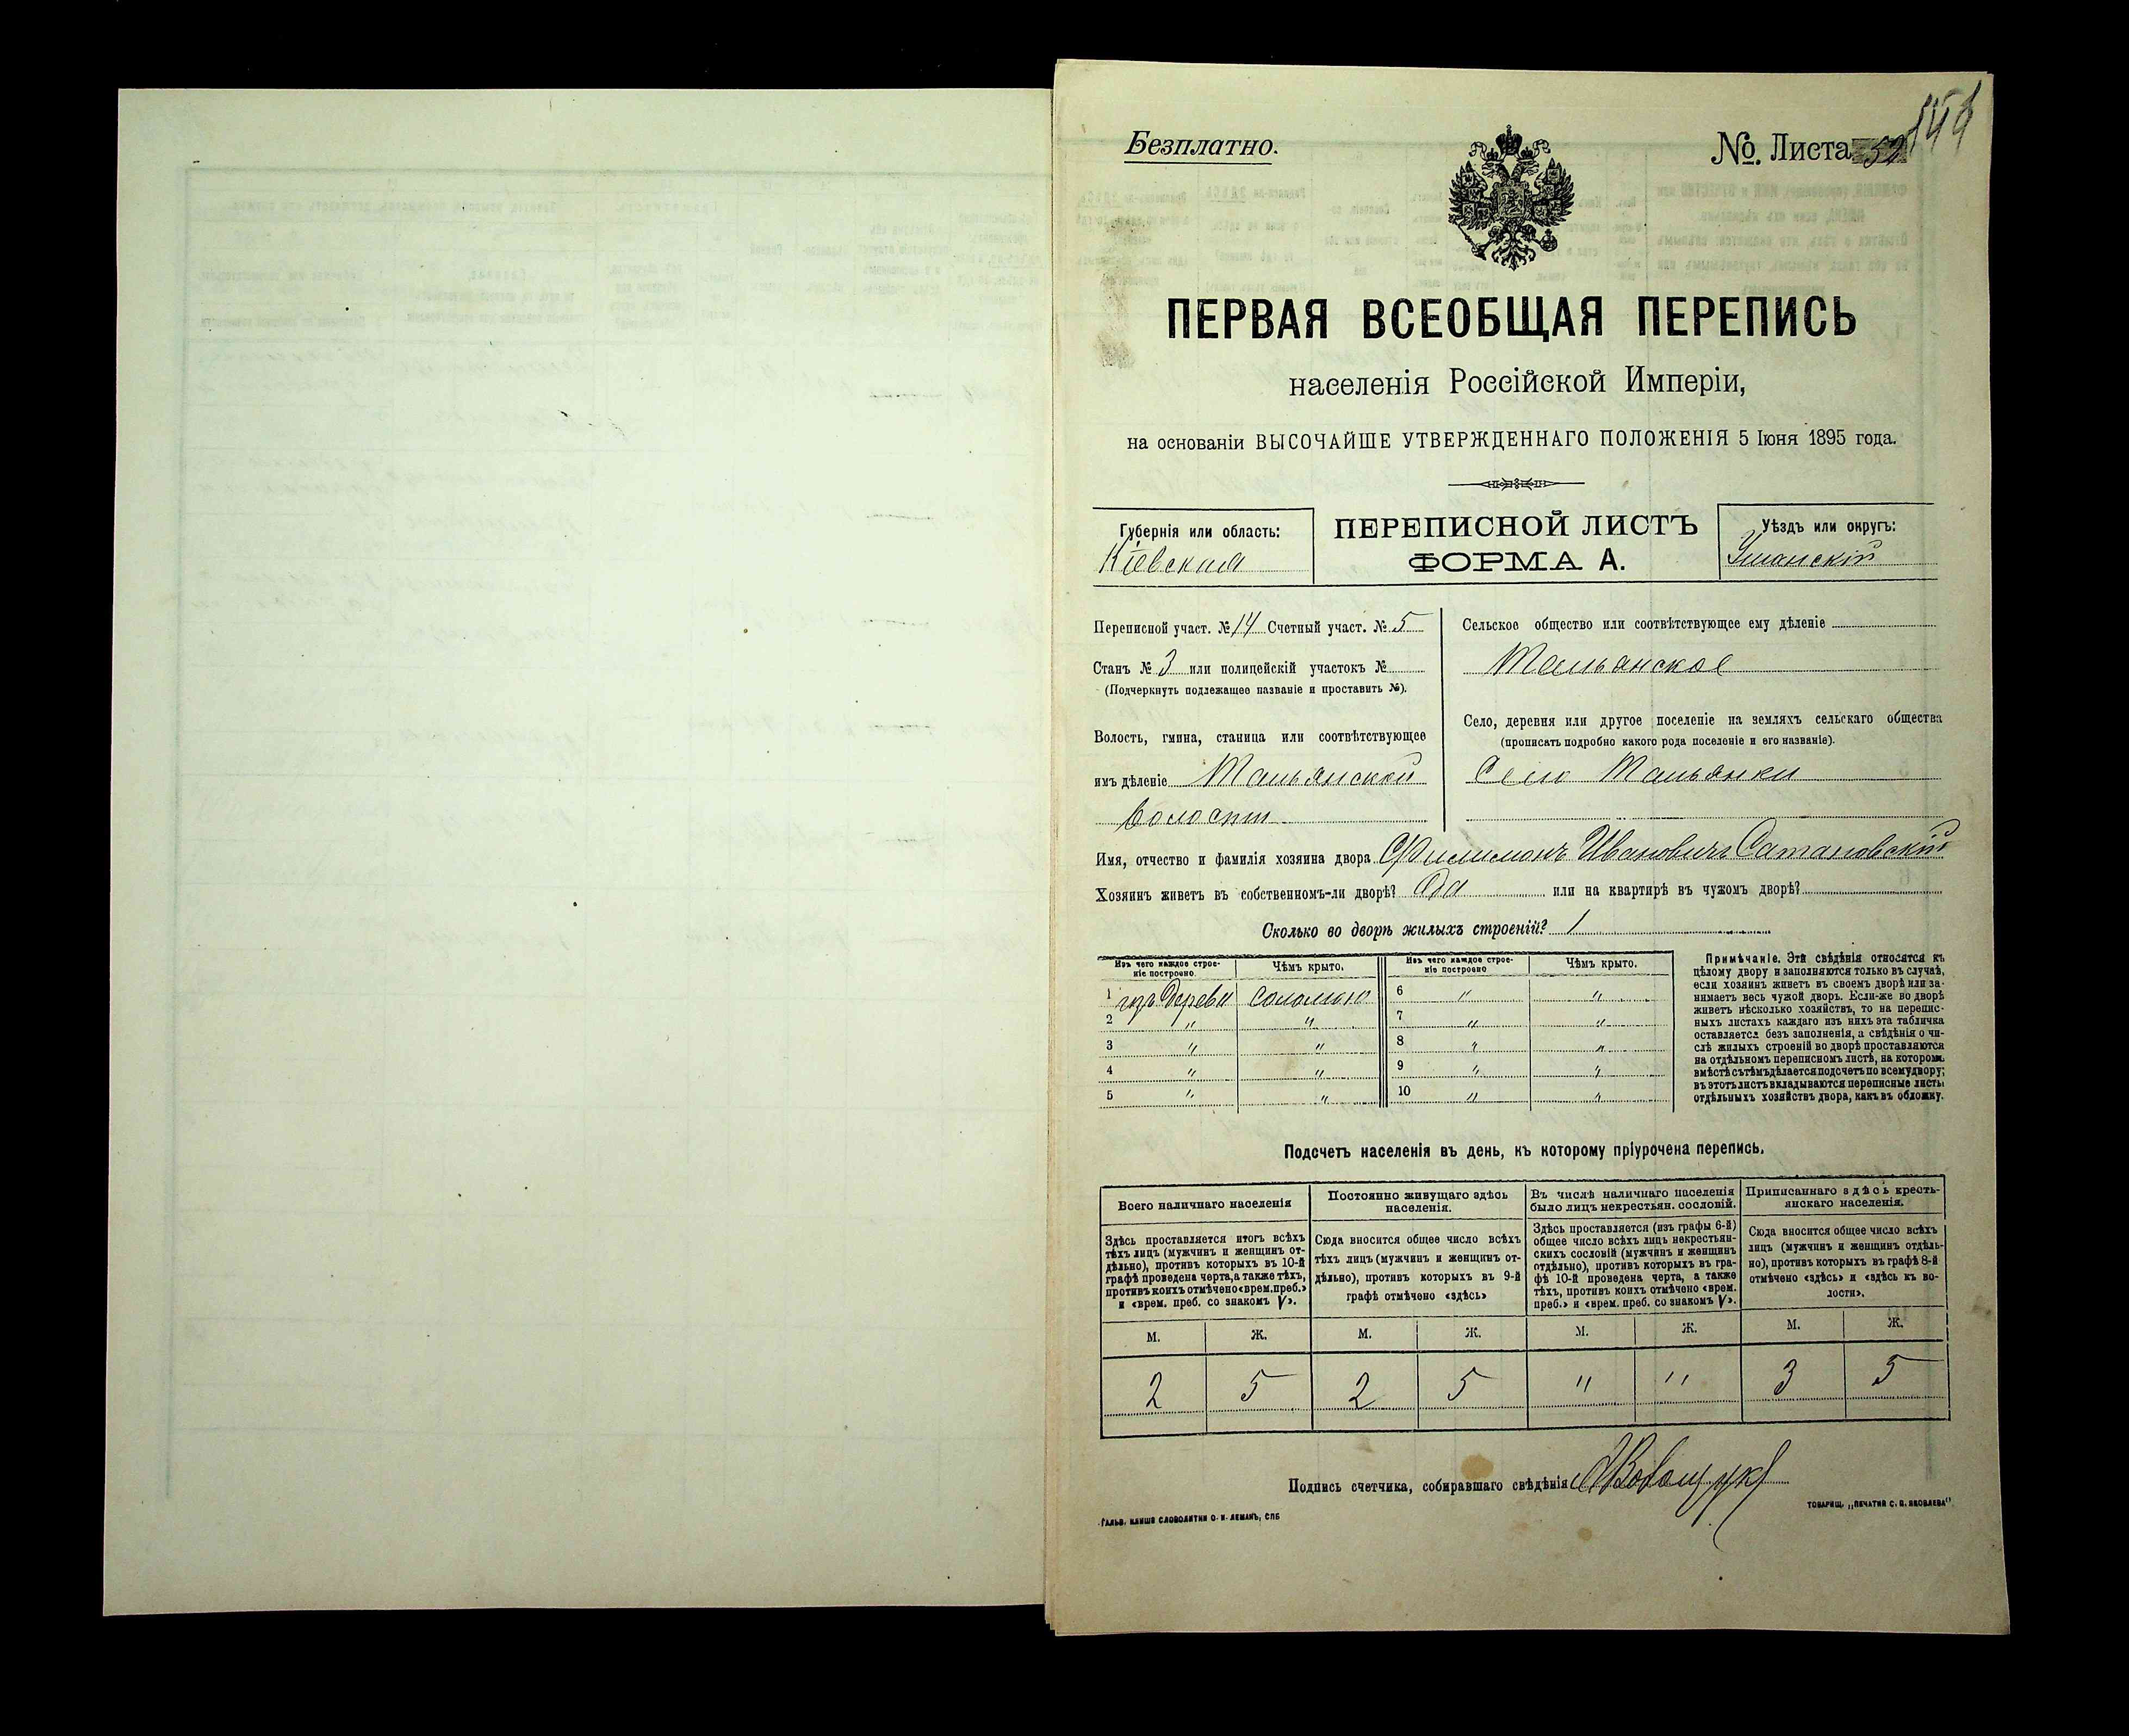 Безплатно.
№. Листа 52
ПЕРВАЯ ВСЕОБЩАЯ ПЕРЕПИСЬ
населенія Россійской Имперіи,
на основаніи ВЫСОЧАЙШЕ УТВЕРЖДЕННАГО ПОЛОЖЕНІЯ 5 Іюня 1895 года.
Губернія или область:
Кіевская
ПЕРЕПИСНОЙ ЛИСТЪ
ФОРМА А.
Уѣздъ или округъ:
Уманскій
Переписной участ. № 14 Счетный участ. № 5
Станъ № 3 или полицейскій участокъ №
(Подчеркнуть подлежащее названіе и проставить №).
Волость, гмина, станица или соотвѣтствующее
имъ дѣленіе Тальянской
волости
Сельское общество или соотвѣтствующее ему дѣленіе
Тальянское
Село, деревня или другое поселеніе на земляхъ сельскаго общества
(прописать подробно какого рода поселеніе и его названіе).
Село Тальянки
Имя, отчество и фамилія хозяина двора Филимонъ Ивановичъ Сатановскій
Хозяинъ живетъ въ собственномъ-ли дворѣ? Да или на квартирѣ въ чужомъ дворѣ?
Сколько во дворѣ жилыхъ строеній? 1
Изъ чего каждое строе-
ніе построено.
Чѣмъ крыто.
Изъ чего каждое строе-
ніе построено
Чѣмъ крыто.
1 изъ дерева соломою 6 " "
2 " " 7 " "
3 " " 8 " "
4 " " 9 " "
5 " " 10 " "
Примѣчаніе. Эти свѣдѣнія относятся къ
цѣлому двору и заполняются только въ случаѣ,
если хозяинъ живетъ въ своемъ дворѣ или за-
нимаетъ весь чужой дворъ. Если-же во дворѣ
живетъ нѣсколько хозяйствъ, то на перепис-
ныхъ листахъ каждаго изъ нихъ эта табличка
оставляется безъ заполненія, а свѣдѣнія о чи-
слѣ жилыхъ строеній во дворѣ проставляются
на отдѣльномъ переписномъ листѣ, на которомъ
вмѣстѣ съ тѣмъ дѣлается подсчетъ по всему двору;
въ этотъ листъ вкладываются переписные листы
отдѣльныхъ хозяйствъ двора, какъ въ обложку.
Подсчетъ населенія въ день, къ которому пріурочена перепись.
Всего наличнаго населенія
Здѣсь проставляется итогъ всѣхъ
тѣхъ лицъ (мужчинъ и женщинъ от-
дѣльно), противъ которыхъ въ 10-й
графѣ проведена черта, а также тѣхъ,
противъ коихъ отмѣчено «врем. преб.»
и «врем. преб. со знакомъ V».
Постоянно живущаго здѣсь
населенія.
Сюда вносится общее число всѣхъ
тѣхъ лицъ (мужчинъ и женщинъ от-
дѣльно), противъ которыхъ въ 9-й
графѣ отмѣчено «здѣсь»
Въ числѣ наличнаго населенія
было лицъ некрестьян. сословій.
Здѣсь проставляется (изъ графы 6-й)
общее число всѣхъ лицъ некрестьян-
скихъ сословій (мужчинъ и женщинъ
отдѣльно), противъ которыхъ въ гра-
фѣ 10-й проведена черта, а также
тѣхъ, противъ коихъ отмѣчено «врем.
преб.» и «врем. преб. со знакомъ V».
Приписаннаго здѣсь кресть-
янскаго населенія.
Сюда вносится общее число всѣхъ
лицъ (мужчинъ и женщинъ отдѣль-
но), противъ которыхъ въ графѣ 8-й
отмѣчено «здѣсь» и «здѣсь къ во-
лости».
М. Ж. М. Ж. М. Ж. М. Ж.
2 5 2 5 " " 3 5
Подпись счетчика, собиравшаго свѣдѣнія
ГАЛЬВ. КЛИШЕ СЛОВОЛИТНИ О. И. ЛЕМАНЪ, СПБ
ТОВАРИЩ. „ПЕЧАТНЯ С. П. ЯКОВЛЕВА"